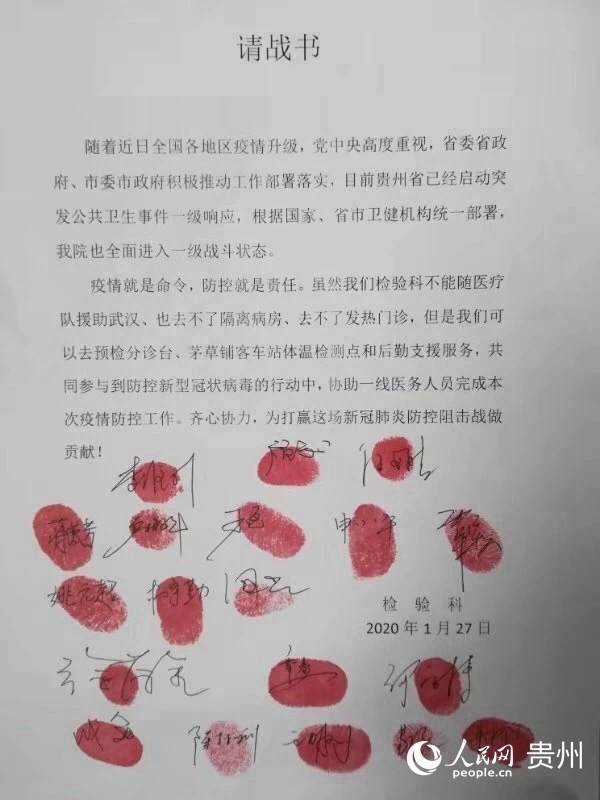 请战书
随着近日全国各地区疫情升级，党中央高度重视，省委省政
府、市委市政府积极推动工作部署落实，目前贵州省已经启动突
发公共卫生事件一级响应，根据国家、省市卫健机构统一部署，
我院也全面进入一级战斗状态。
疫情就是命令，防控就是责任。虽然我们检验科不能随医疗
队援助武汉、也去不了隔离病房、去不了发热门诊，但是我们可
以去预检分诊台、茅草铺客车站体温检测点和后勤支援服务，共
同参与到防控新型冠状病毒的行动中，协助一线医务人员完成本
次疫情防控工作。齐心协力，为打赢这场新冠肺炎防控阻击战做
贡献！
检验科
2020年1月27日
人民网 贵州
people.cn